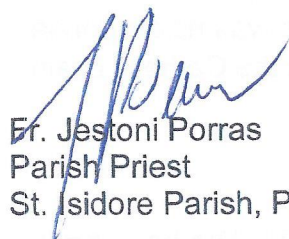 Fr. Jestoni Porras
Parish Priest
St. Isidore Parish, P